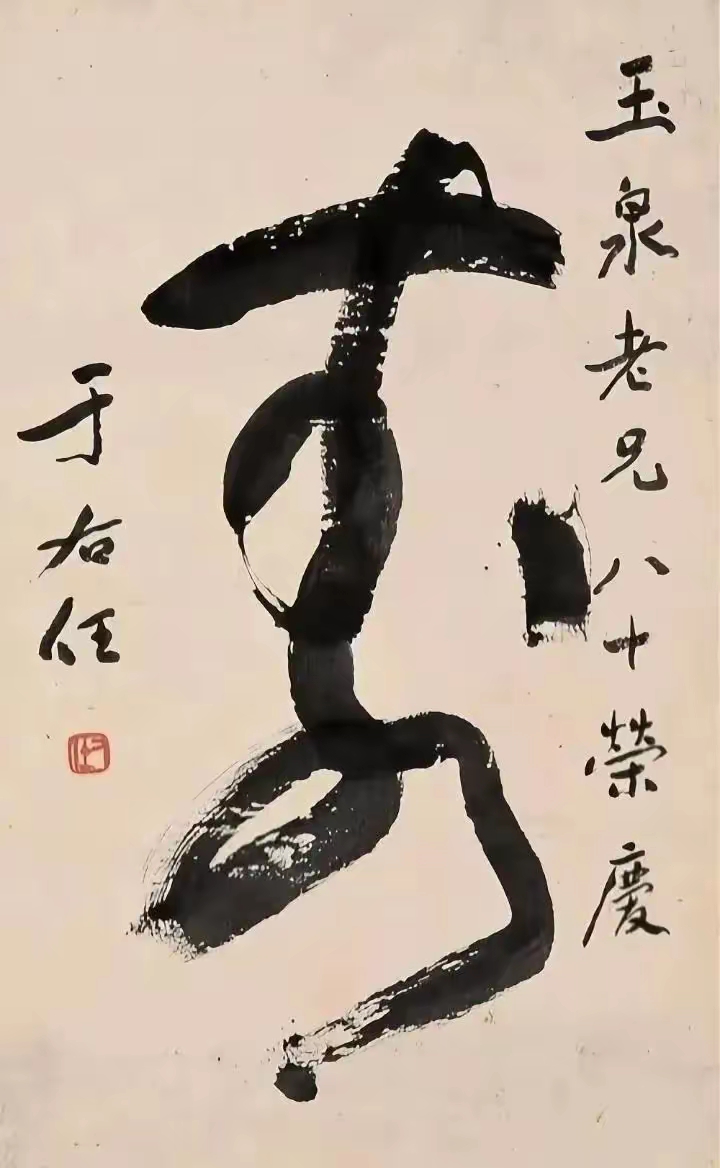 玉泉老兄八十榮慶
壽
于右任